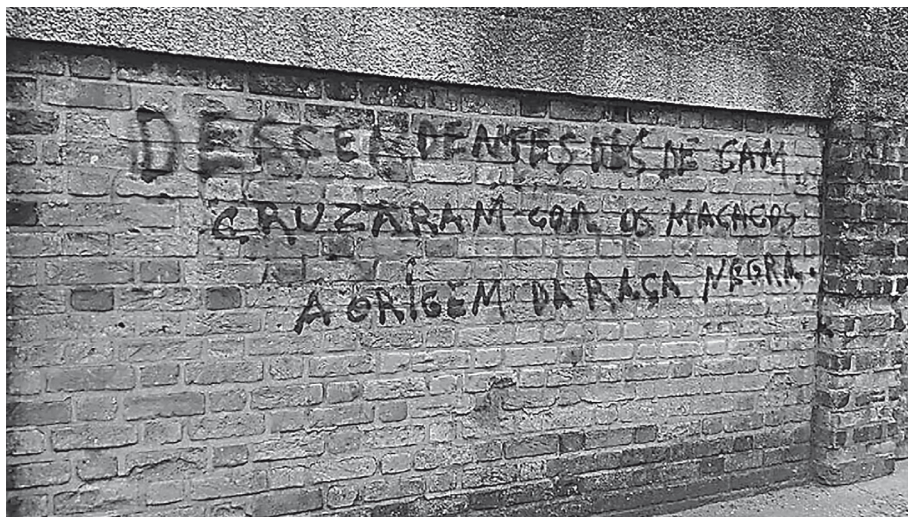 DESCENDENTES DES DE CAM,
CRUZARAM COM OS MACACOS
A ORÍGEM DA RAÇA NEGRA.